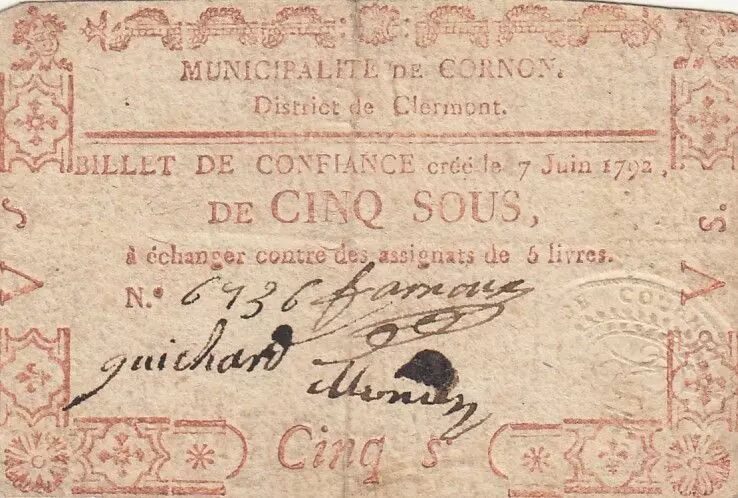 MUNICIPALITÉ DE CORNON.
District de Clermont.
BILLET DE CONFIANCE créé le 7 Juin 1792,
DE CINQ SOUS,
à échanger contre des assignats de 5 livres.
N.° 6936
guichard
V s
V s.
DE CO
Cinq s